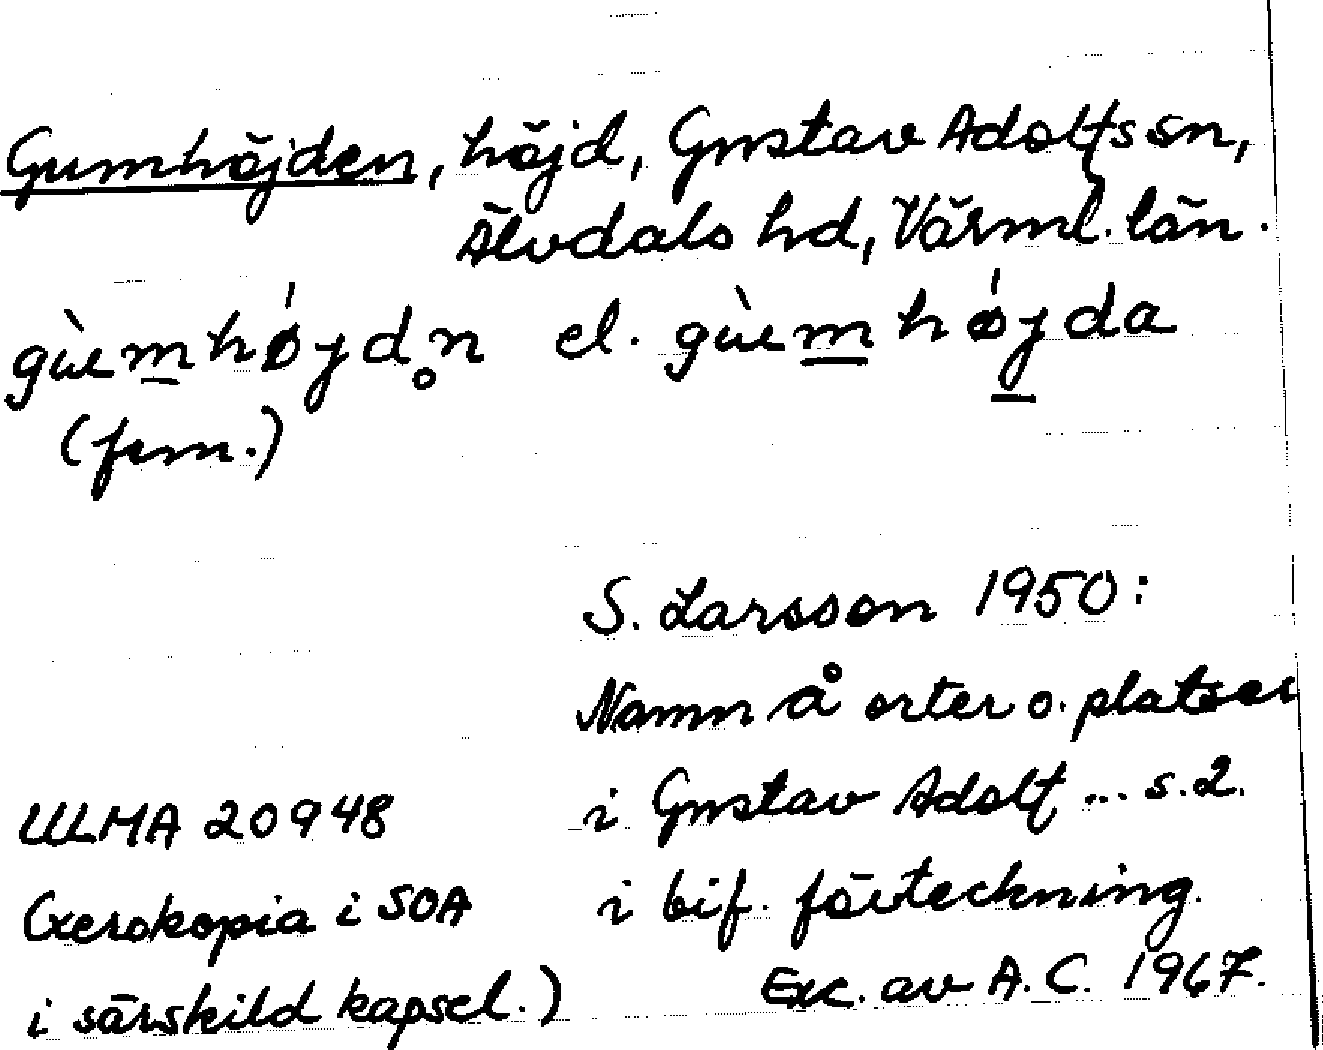 Gumhöjden, höjd, Gustav Adolfs sn,
Älvdals hd, Värml. län.
gùemhǿjdn̥ el. gùemhǿjda
(fem.)
S. Larsson 1950:
Namn å orter o. platser
i Gustav Adolf ... s. 2.
i bif. förteckning.
ULMA 20948
(Xerokopia i SOA
i särskild kapsel.)
Exc. av A.C. 1967.